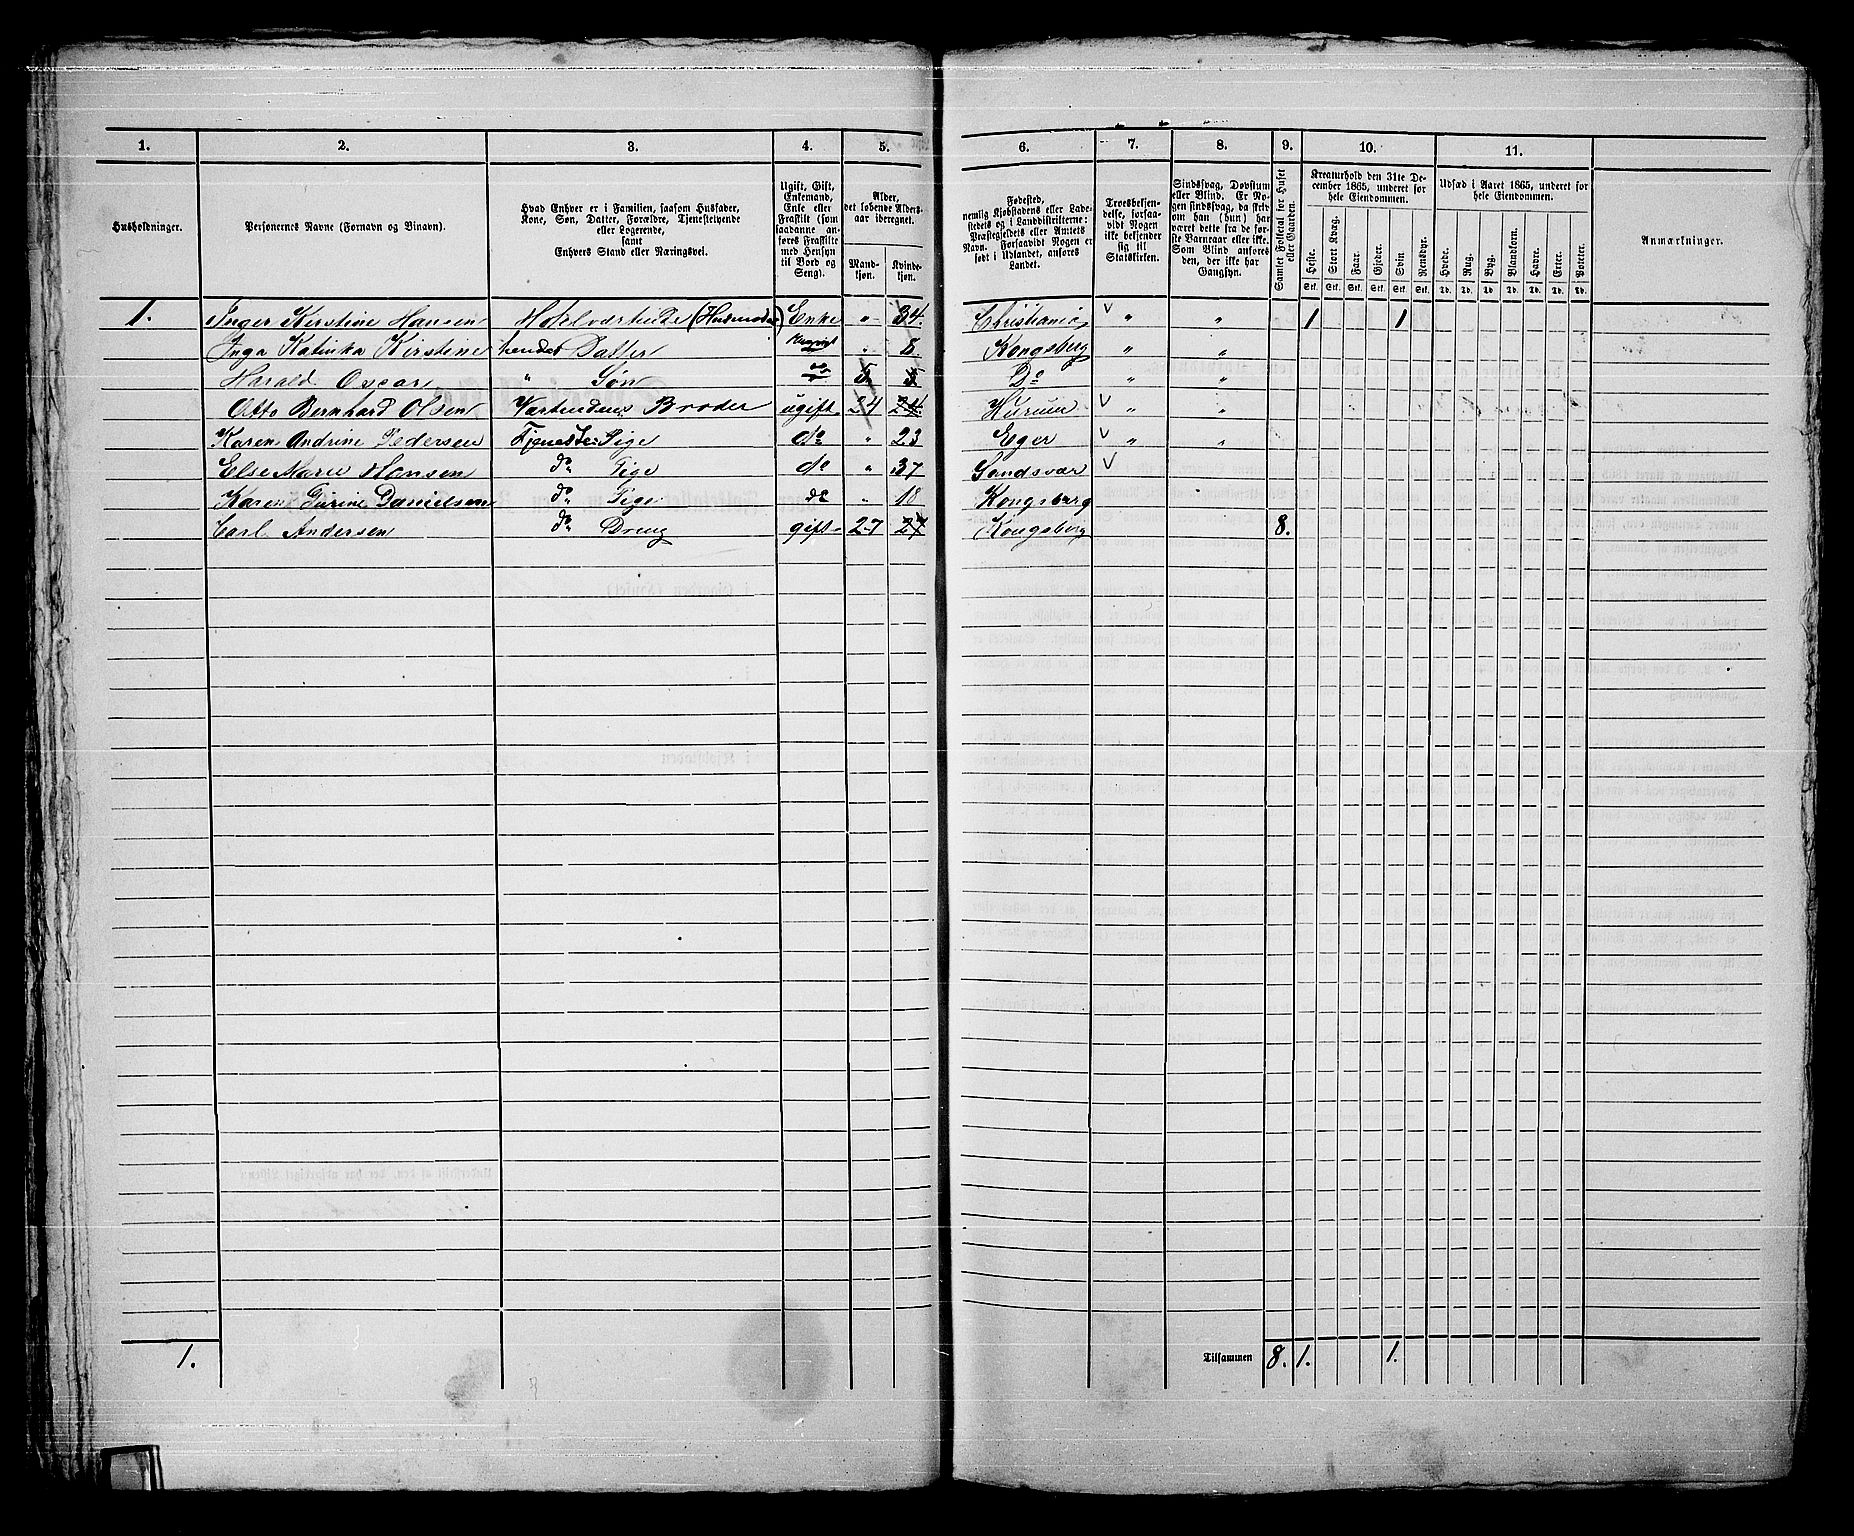 1. 2. 3. 4. 5. 6. 7. 8. 9. 10. 11.
Husholdninger.
Personernes Navne (Fornavn og Binavn).
Hvad Enhver er i Familien, saasom Husfader,
Kone, Søn, Datter, Forældre, Tjenestetyende
eller Logerende,
samt
Enhvers Stand eller Næringsvei.
Ugift, Gift,
Enkemand,
Enke eller
Fraskilt (som
saadanne an-
føres Fraskilte
med Hensyn
til Bord og
Seng).
Alder,
det løbende Alders-
aar iberegnet.
Mand-
kjøn.
Kvinde-
kjøn.
Fødested,
nemlig Kjøbstadens eller Lade-
stedets og i Landdistrikterne:
Præstegjeldets eller Amtets
Navn. Forsaavidt Nogen er
født i Udlandet, anføres
Landet.
Troesbekjen-
delse, forsaa-
vidt Nogen
ikke bekjender
sig til
Statskirken.
Sindssvag, Døvstum
eller Blind. Er No-
gen sindssvag, da skriv
om han (hun) har
været dette fra de før-
ste Barneaar eller ikke.
Som Blind anføres
den, der ikke har
Gangsyn.
Samlet Folketal for Huset
eller Gaarden.
Kreaturhold den 31te De-
cember 1865, underet for
hele Eiendommen.
Heste. Stort Kvæg. Faar. Gjeder. Svin. Rensdyr.
Stk. Stk. Stk. Stk. Stk. Stk.
Udsæd i Aaret 1865, underet for
hele Eiendommen.
Hvede. Rug. Byg. Blandkorn. Havre. Erter. Poteter.
Td. Td. Td. Td. Td. Td. Td.
Anmærkninger.
1. Inger Kirstine Hansen Enke " 34. Christiania v " " 1 1
Inga Katinka Kirstine hendes Datter " 8 Kongsberg " "
Harald Oscar " Søn do 5 5 Do " "
Otto Bernhard Olsen Værtindens Broder ugift 24 24 Hurum v " "
Karen Andrine Pedersen Tjeneste Pige do " 23 Eger v " "
Else Marie Hansen do Pige do " 37 Sandsvær v
Karen Danielsen do Pige do " 18 Kongsberg
Carl Andersen do Dreng gift 27 27 Kongsberg 8.
1. Tilsammen 8. 1. 1.